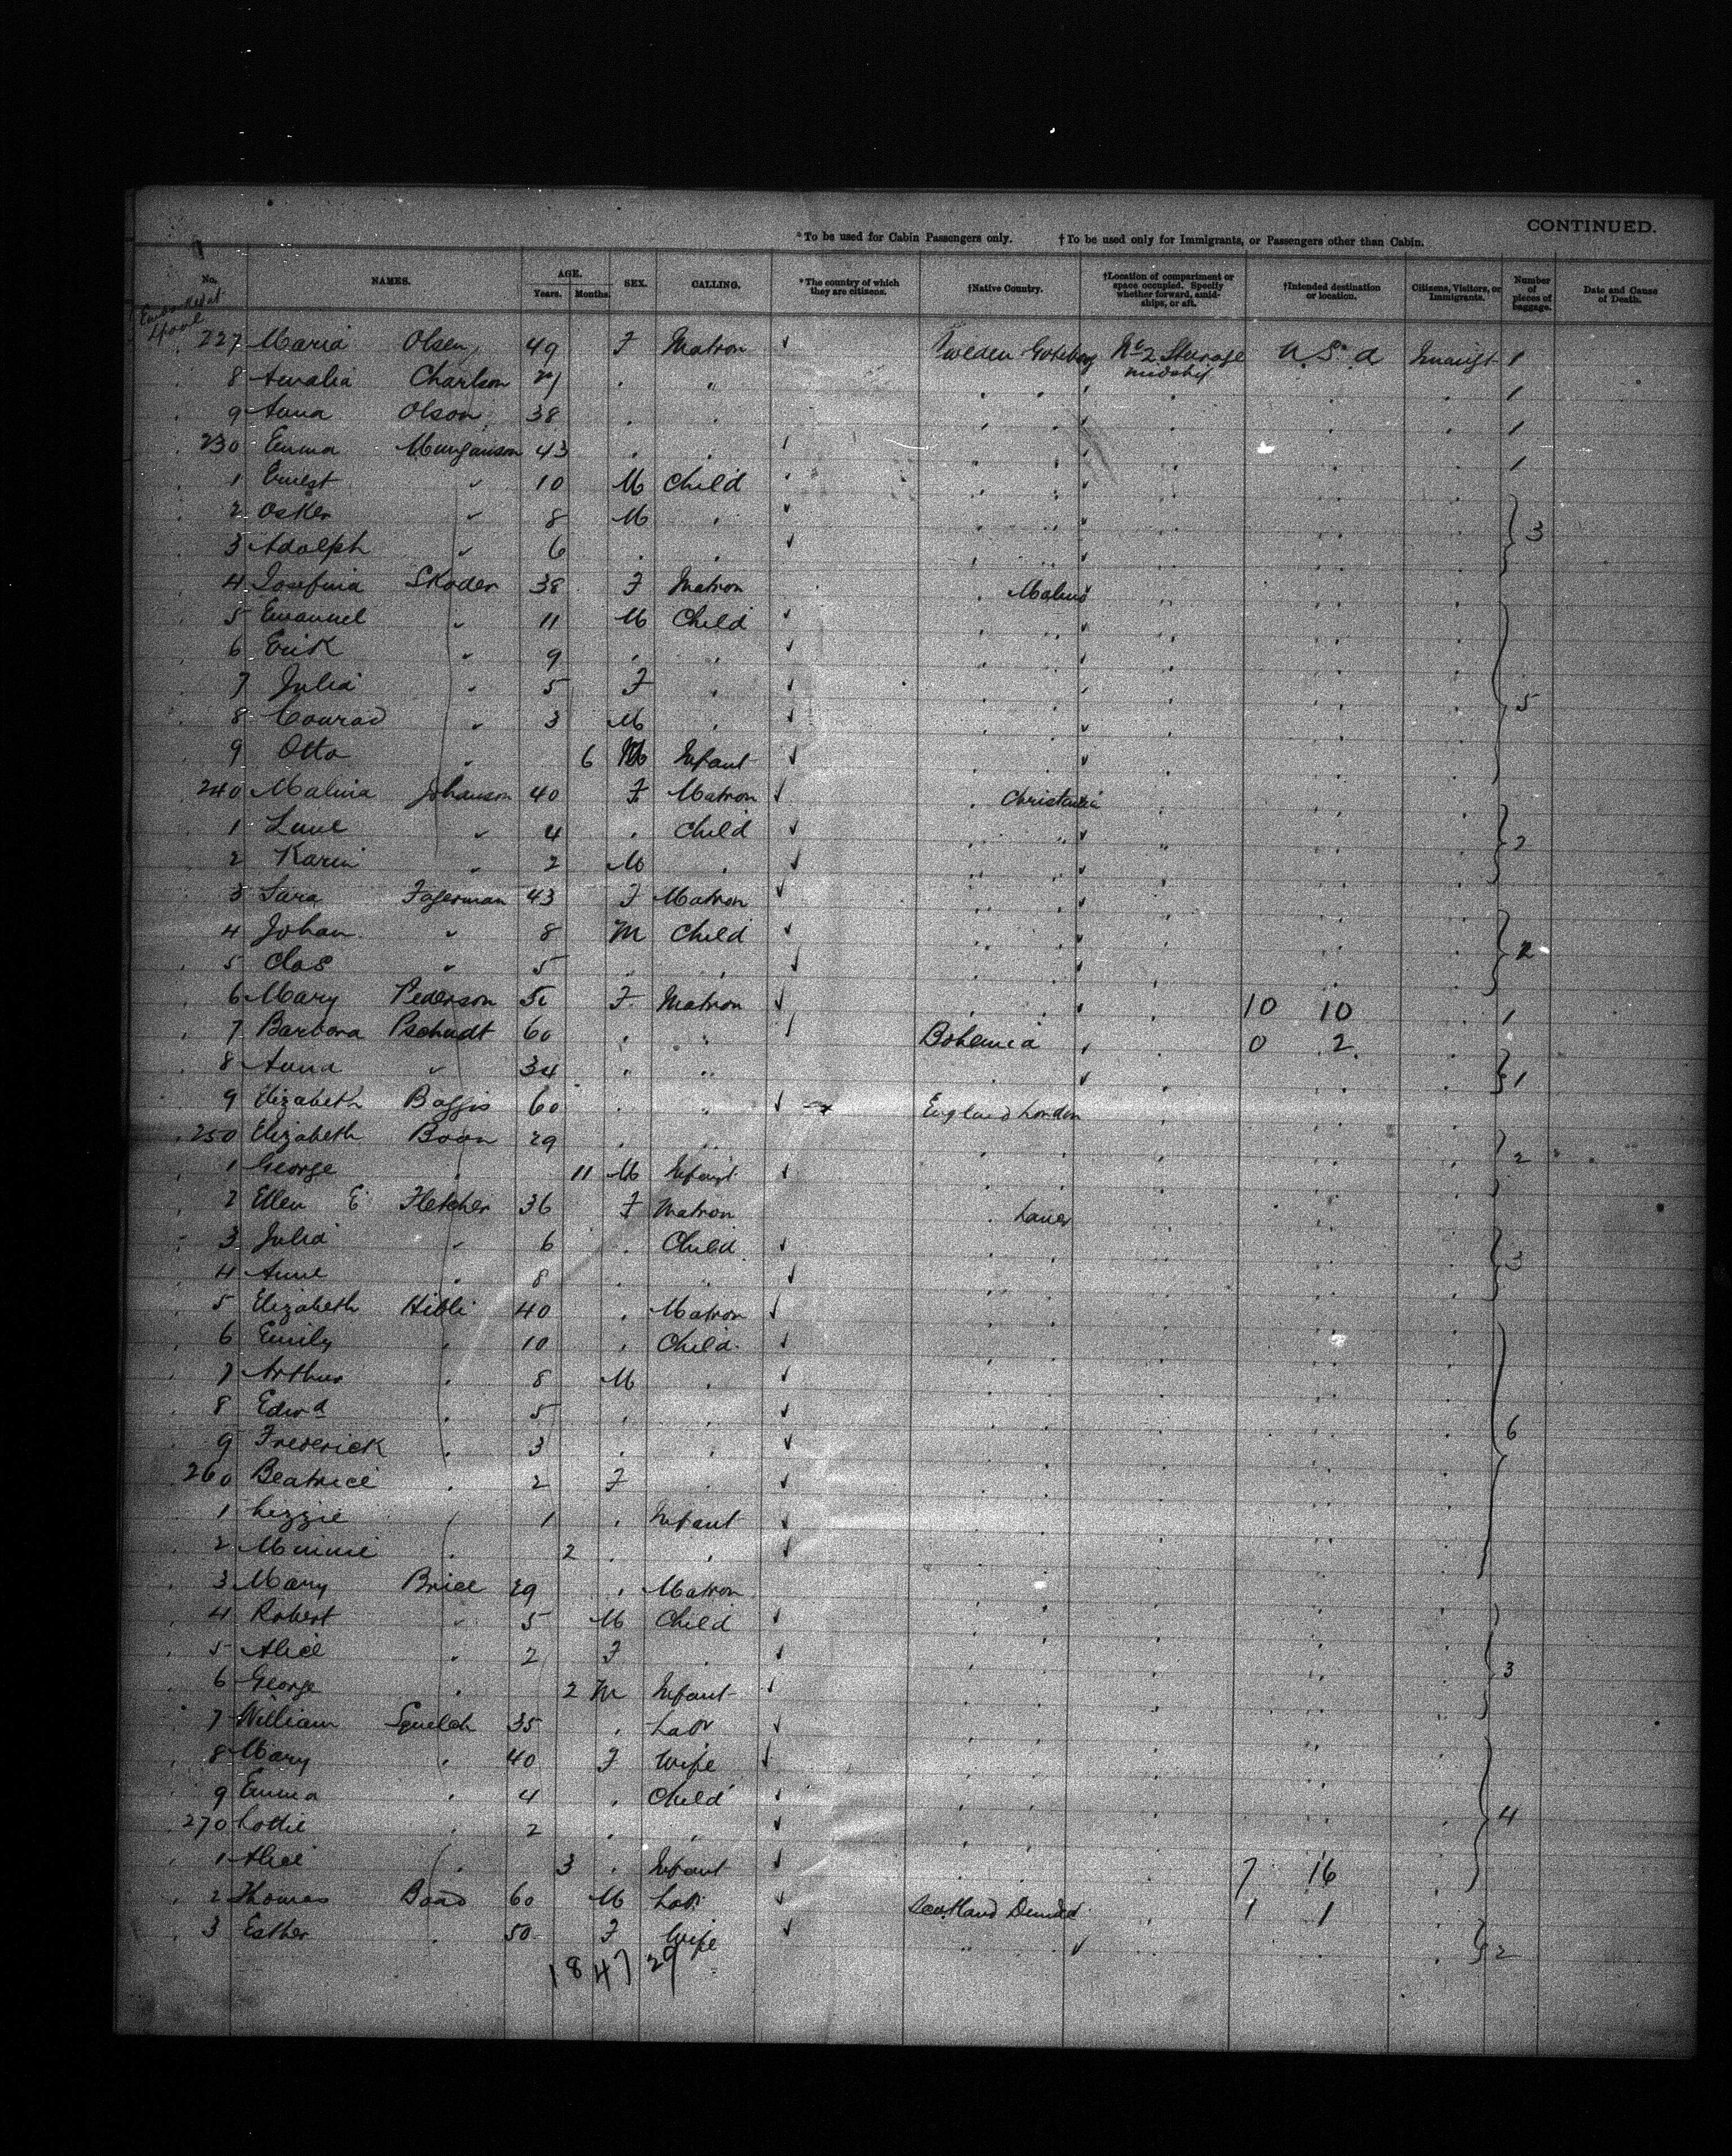 CONTINUED.
*To be used for Cabin Passengers only. †To be used only for Immigrants, or Passengers other than Cabin.
No. NAMES. AGE. Years. Months. SEX. CALLING. *The country of which they are citizens. †Native Country. †Location of compartment or space occupied. Specify whether forward, amidships, or aft. †Intended destination or location. Citizens, Visitors, or Immigrants. Number of pieces of baggage. Date and Cause of Death.
Embarked at
227 Maria Olsen 49 F Matron Sweden Goteborg No 2 Steerage midship U.S.A 1
8 Amalia Charlson " 1
9 Anna Olson 38 1
230 Emma 43 1
1 Ernest " 10 M Child
2 Osker " 8 M 3
3 Adolph " 6
4 Josefina Skoder 38 F Matron
5 Emanuel " 11 M Child
6 Erik " 9
7 Julia " 5 F 5
8 Conrad " 3 M
9 Otto " 6 M Infant
240 Malina Johanson 40 F Matron
1 " 4 Child 2
2 Karin " 2 M
3 Sara Fagerman 43 F Matron
4 Johan " 8 M Child 2
5 Clas " 5
6 Mary Pederson F Matron 10 10 1
7 Barbora 60 Bohemia 0 2
8 Anna " 34 1
9 Elizabeth 60 " England London
250 Elizabeth Boon 29 2
1 George " 11 M Infant
2 Ellen E Fletcher 36 F Matron
3 Julia " 6 Child 3
4 Anne " 8
5 Elizabeth 40 Matron
6 Emily " 10 Child
7 Arthur " 8 M
8 Edwd " 5 6
9 Frederick " 3
260 Beatrice " 2 F
1 Lizzie " 1 Infant
2 Minnie " 2
3 Mary Brice 29 Matron
4 Robert " 5 M Child
5 Alice " 2 F 3
6 George " 2 M Infant
7 William Squelch 35 Labr
8 Mary " 40 F Wife
9 Emma " 4 Child 4
270 Lottie " 2
1 Alice " 3 Infant 7 16
2 Thomas 60 M Labr Scotland 1 1
3 Esther " 50 F Wife 2
18 47 29